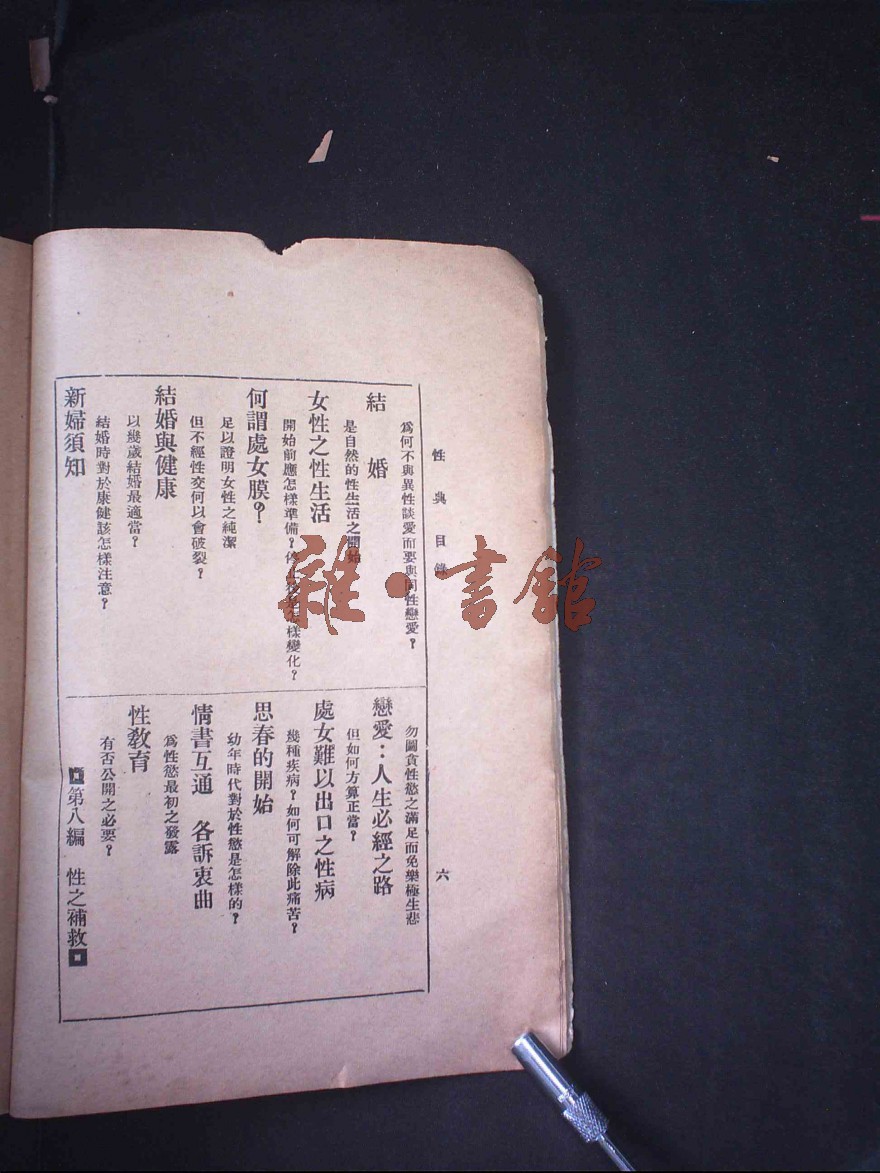 性典目錄
六
爲何不與異性談愛而要與同性戀愛？
結婚
是自然的性生活之開始
女性之性生活
開始前應怎樣準備？停止後是怎樣變化？
何謂處女膜？
足以證明女性之純潔
但不經性交何以會破裂？
結婚與健康
以幾歲結婚最適當？
結婚時對於康健該怎樣注意？
新婦須知
勿圖貪性慾之滿足而免樂極生悲
戀愛：人生必經之路
但如何方算正當？
處女難以出口之性病
幾種疾病？如何可解除此痛苦？
思春的開始
幼年時代對於性慾是怎樣的？
情書互通　各訴衷曲
爲性慾最初之發露
性教育
有否公開之必要？
第八編　性之補救
雜·書館